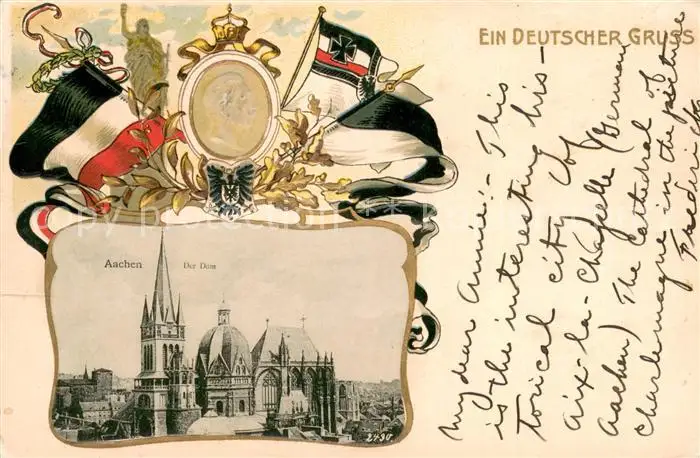 EIN DEUTSCHER GRUSS
Aachen Der Dom
2490
My dear Annie:- This
is the interesting his-
torical city of
Aix-la-Chapelle (German
Aachen) The Cathedral of
Charlemagne in the picture
Frederick